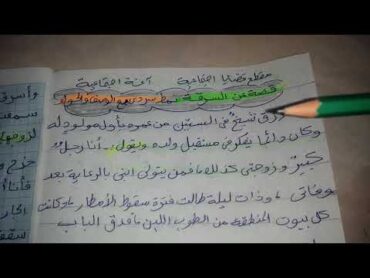 مقطع قضايا اجتماعية آفة اجتماعية
قصة عن السرقة بنمط سردي مع الوصف والحوار
رزق شيخ في الستين من عمره بأول مولود له
وكان دائما يفكر في مستقبل ولده ويقول: أنا رجل
كبير وزوجتي كذلك فمن يتولى ابني بالرعاية بعد
وفاتي. وذات ليلة طالت فترة سقوط الأمطار وكانت
كل بيوت المنطقة من الطوب اللبن فدق الباب
وأسرق
سمعت
لزوجها
خرج
فأنا
الجار
سقف